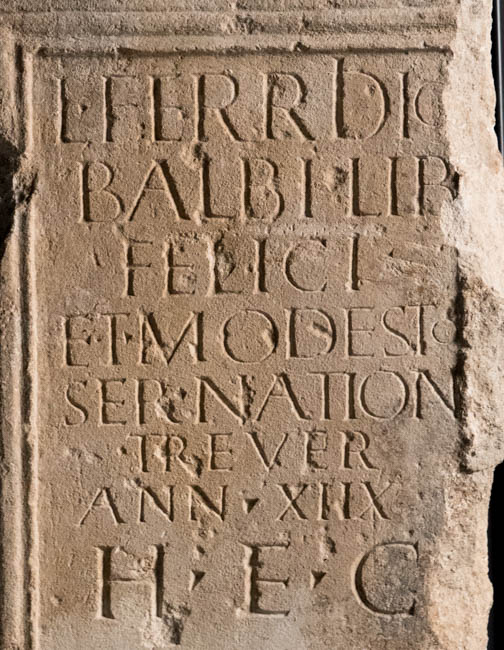 L·FERRIDIO
BALBI·LIB
FELICI
ET·MODESTO
SER·NATION
TREVER
ANN·XIIX
H·E·C